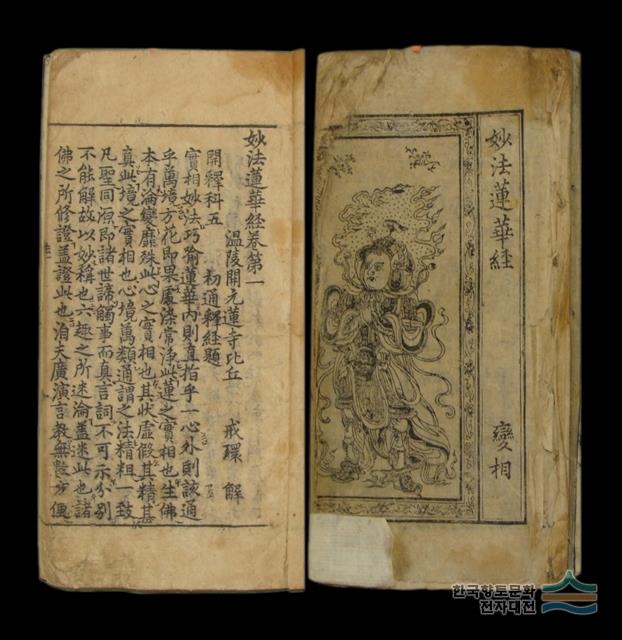 妙法蓮華經
變相
妙法蓮華經卷第一
溫陵開元蓮寺比丘 戒環 解
開釋科五 初通釋經題
實相妙法巧喻蓮華內則直指乎一心外則該通
乎萬境方花即果處染常淨此蓮之實相也生佛
本有淪變靡殊此心之實相也其狀虛假其精甚
眞此境之實相也心境萬類通謂之法精粗一致
凡聖同源即諸世諦觸事而眞言詞不可示分別
不能解故以妙稱也六趣之所迷淪盖迷此也諸
佛之所修證盖證此也洎夫廣演言敎無數方便
한국향토문화
전자대전